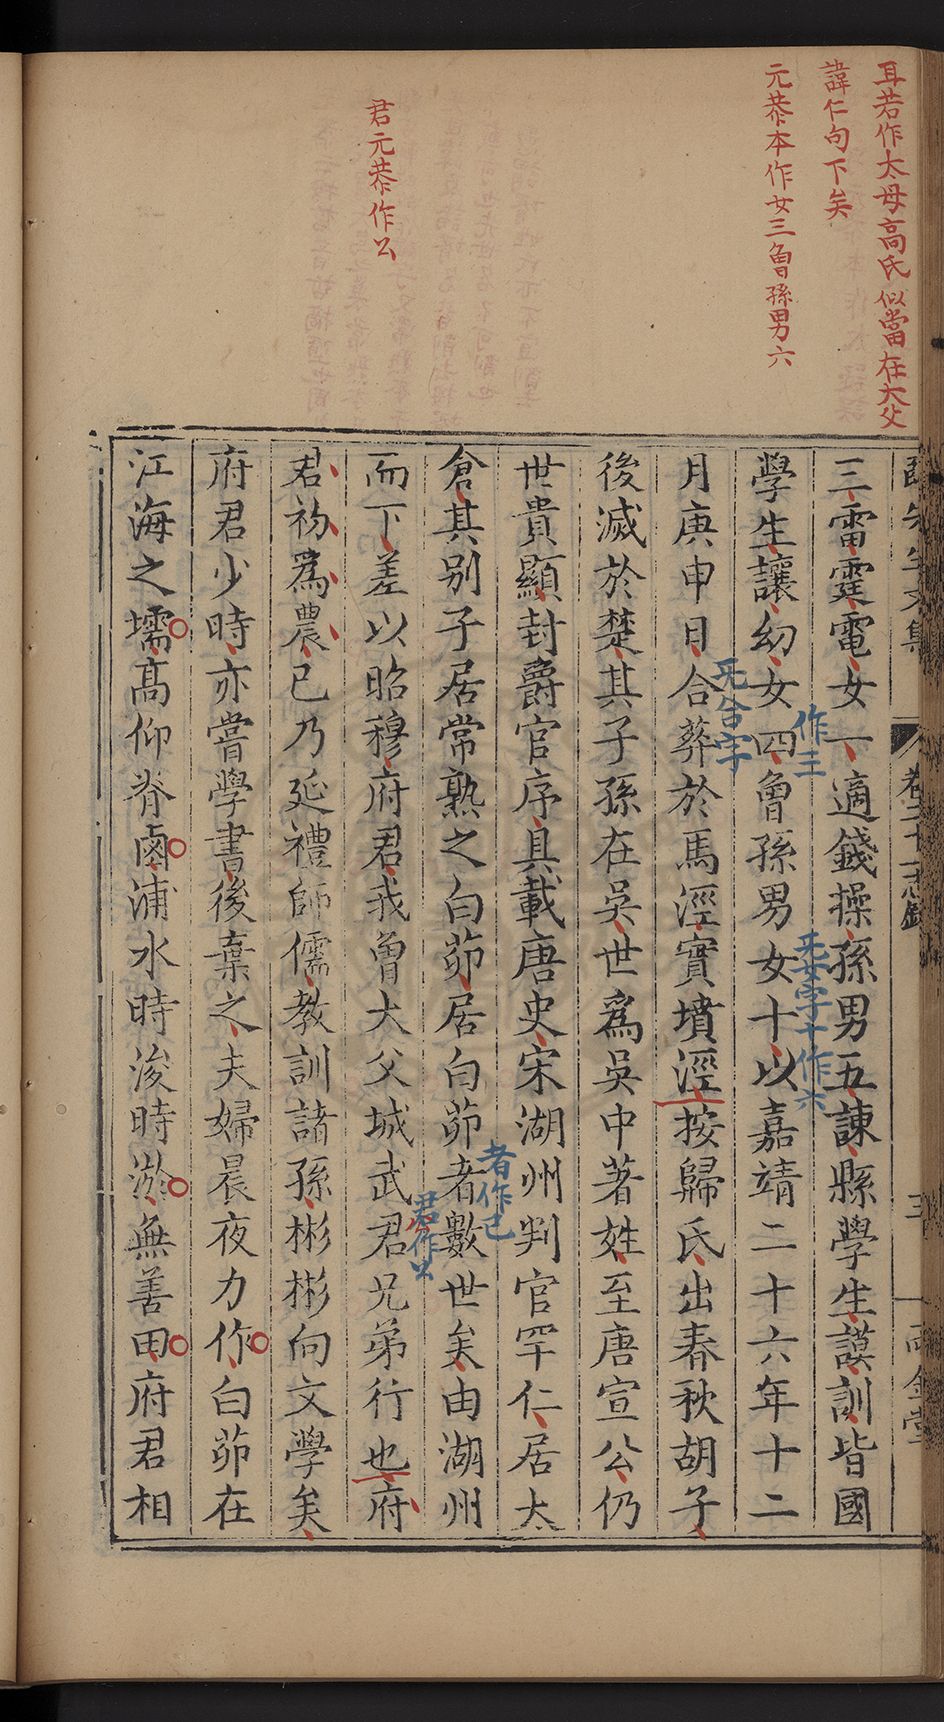 耳若作太母高氏似當在大父
諱仁句下矣
元恭本作女三曾孫男六
君元恭作公
三雷霆電女一適錢操孫男五諫縣學生謨訓皆國
學生讓幼女四曾孫男女十以嘉靖二十六年十二
作三
无女字十作六
月庚申日合葬於馬涇實墳涇按歸氏出春秋胡子
无合字
後滅於楚其子孫在吳世爲吳中著姓至唐宣公仍
世貴顯封爵官序具載唐史宋湖州判官罕仁居太
倉其别子居常熟之白茆居白茆者數世矣由湖州
者作已
而下差以昭穆府君我曾大父城武君兄弟行也府
君作公
君初爲農已乃延禮師儒教訓諸孫彬彬向文學矣
府君少時亦嘗學書後棄之夫婦晨夜力作白茆在
江海之壖高仰瘠鹵浦水時浚時淤無善田府君相